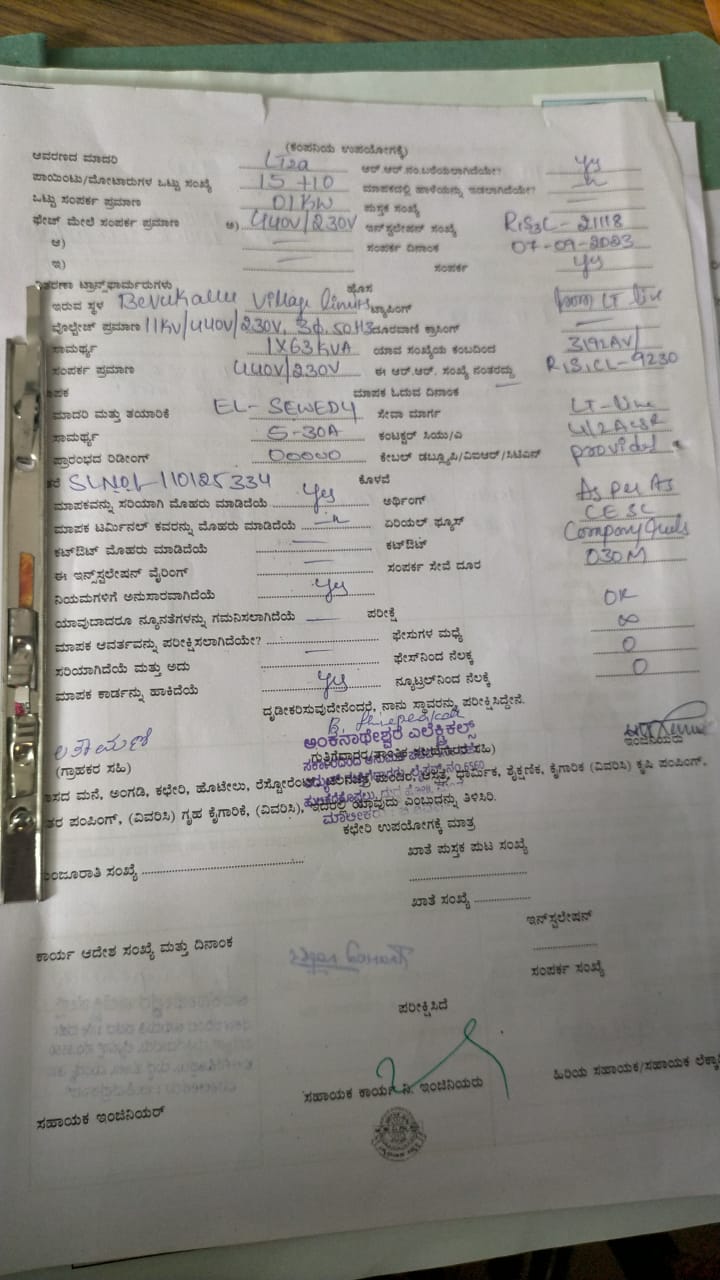 (ಕಂಪನಿಯ ಉಪಯೋಗಕ್ಕೆ)
ಆವರಣದ ಮಾದರಿ LT2a ಆರ್.ಆರ್.ನಂ.ಬರೆಯಲಾಗಿದೆಯೇ? Yes
ಪಾಯಿಂಟು/ಮೋಟಾರುಗಳ ಒಟ್ಟು ಸಂಖ್ಯೆ 15+10 ಮಾಪಕದಲ್ಲಿ ಹಾಳೆಯನ್ನು ಇಡಲಾಗಿದೆಯೇ?
ಒಟ್ಟು ಸಂಪರ್ಕ ಪ್ರಮಾಣ 01KW ಪುಸ್ತಕ ಸಂಖ್ಯೆ
ಫೇಚ್ ಮೇಲೆ ಸಂಪರ್ಕ ಪ್ರಮಾಣ ಅ) 440V/230V ಇನ್‌ಸ್ಟಲೇಷನ್ ಸಂಖ್ಯೆ RIS3L-21118
ಆ) ಸಂಪರ್ಕ ದಿನಾಂಕ 07-09-2023
ಇ) ಸಂಪರ್ಕ Yes
ವಿತರಣಾ ಟ್ರಾನ್ಸ್‌ಫಾರ್ಮರುಗಳು ಹೊಸ
ಇರುವ ಸ್ಥಳ Bevukallu Village limits ಟ್ಯಾಪಿಂಗ್ from LT line
ವೊಲ್ಟೇಜ್ ಪ್ರಮಾಣ 11KV/440V/230V, 3ϕ, 50H3 ದೂರವಾಣಿ ಕ್ರಾಸಿಂಗ್
ಸಾಮರ್ಥ್ಯ 1X63KVA ಯಾವ ಸಂಖ್ಯೆಯ ಕಂಬದಿಂದ 3192AV/
ಸಂಪರ್ಕ ಪ್ರಮಾಣ 440V/230V ಈ ಆರ್.ಆರ್. ಸಂಖ್ಯೆ ನಂತರದ್ದು RISICL-9230
ಮಾಪಕ ಮಾಪಕ ಓದುವ ದಿನಾಂಕ
ಮಾದರಿ ಮತ್ತು ತಯಾರಿಕೆ EL-SEWEDY ಸೇವಾ ಮಾರ್ಗ LT-line
ಸಾಮರ್ಥ್ಯ 5-30A ಕಂಟಕ್ಟರ್ ಸಿಯು/ಎ
ಪ್ರಾರಂಭದ ರಿಡೀಂಗ್ 00000 ಕೇಬಲ್ ಡಬ್ಲ್ಯೂಪಿ/ವಿಐಆರ್/ಸಿಟಿಎಸ್ provided
SLNO1-110125334 ಕೊಳವೆ
ಮಾಪಕವನ್ನು ಸರಿಯಾಗಿ ಮೊಹರು ಮಾಡಿದೆಯೆ Yes ಅರ್ಥಿಂಗ್ As per As
ಮಾಪಕ ಟರ್ಮಿನಲ್ ಕವರನ್ನು ಮೊಹರು ಮಾಡಿದೆಯೆ ಏರಿಯಲ್ ಫ್ಯೂಸ್ CESC
ಕಟ್‌ಔಟ್ ಮೊಹರು ಮಾಡಿದೆಯೆ ಕಟ್‌ಔಟ್ Company
ಈ ಇನ್ಸ್‌ಸ್ಟಲೇಷನ್ ವೈರಿಂಗ್ ಸಂಪರ್ಕ ಸೇವೆ ದೂರ 030M
ನಿಯಮಗಳಿಗೆ ಅನುಸಾರವಾಗಿದೆಯೆ Yes
ಯಾವುಬಾದರೂ ನ್ಯೂನತೆಗಳನ್ನು ಗಮನಿಸಲಾಗಿದೆಯೆ ಪರೀಕ್ಷೆ OK
ಮಾಪಕ ಆವರ್ತವನ್ನು ಪರೀಕ್ಷಿಸಲಾಗಿದೆಯೇ? ಫೇಸುಗಳ ಮಧ್ಯೆ ∞
ಸರಿಯಾಗಿದೆಯೆ ಮತ್ತು ಅದು ಫೇಸ್‌ನಿಂದ ನೆಲಕ್ಕೆ 0
ಮಾಪಕ ಕಾರ್ಡನ್ನು ಹಾಕಿದೆಯೆ Yes ನ್ಯೂಟ್ರಲ್‌ನಿಂದ ನೆಲಕ್ಕೆ 0
ದೃಢೀಕರಿಸುವುದೇನೆಂದರೆ, ನಾನು ಸ್ಥಾವರನ್ನು ಪರೀಕ್ಷಿಸಿದ್ದೇನೆ.
ಅಂಕನಾಥೇಶ್ವರ ಎಲೆಕ್ಟ್ರಿಕಲ್ಸ್
(ಗ್ರಾಹಕರ ಸಹಿ) ಇಂಜಿನಿಯರು
ವಾಸದ ಮನೆ, ಅಂಗಡಿ, ಕಛೇರಿ, ಹೊಟೇಲು, ರೆಸ್ಟೋರೆಂಟ್, ಆಸ್ಪತ್ರೆ, ಧಾರ್ಮಿಕ, ಶೈಕ್ಷಣಿಕ, ಕೈಗಾರಿಕ (ವಿವರಿಸಿ) ಕೃಷಿ ಪಂಪಿಂಗ್,
ಇತರ ಪಂಪಿಂಗ್, (ವಿವರಿಸಿ) ಗೃಹ ಕೈಗಾರಿಕೆ, (ವಿವರಿಸಿ), ಇದರಲ್ಲಿ ಯಾವುದು ಎಂಬುದನ್ನು ತಿಳಿಸಿರಿ.
ಕಛೇರಿ ಉಪಯೋಗಕ್ಕೆ ಮಾತ್ರ
ಮಂಜೂರಾತಿ ಸಂಖ್ಯೆ ಖಾತೆ ಪುಸ್ತಕ ಪುಟ ಸಂಖ್ಯೆ
ಖಾತೆ ಸಂಖ್ಯೆ
ಇನ್‌ಸ್ಟಲೇಷನ್
ಕಾರ್ಯ ಆದೇಶ ಸಂಖ್ಯೆ ಮತ್ತು ದಿನಾಂಕ
ಸಂಪರ್ಕ ಸಂಖ್ಯೆ
ಪರೀಕ್ಷಿಸಿದೆ
ಸಹಾಯಕ ಇಂಜಿನಿಯರ್ ಸಹಾಯಕ ಕಾರ್ಯ ನಿ. ಇಂಜಿನಿಯರು ಹಿರಿಯ ಸಹಾಯಕ/ಸಹಾಯಕ